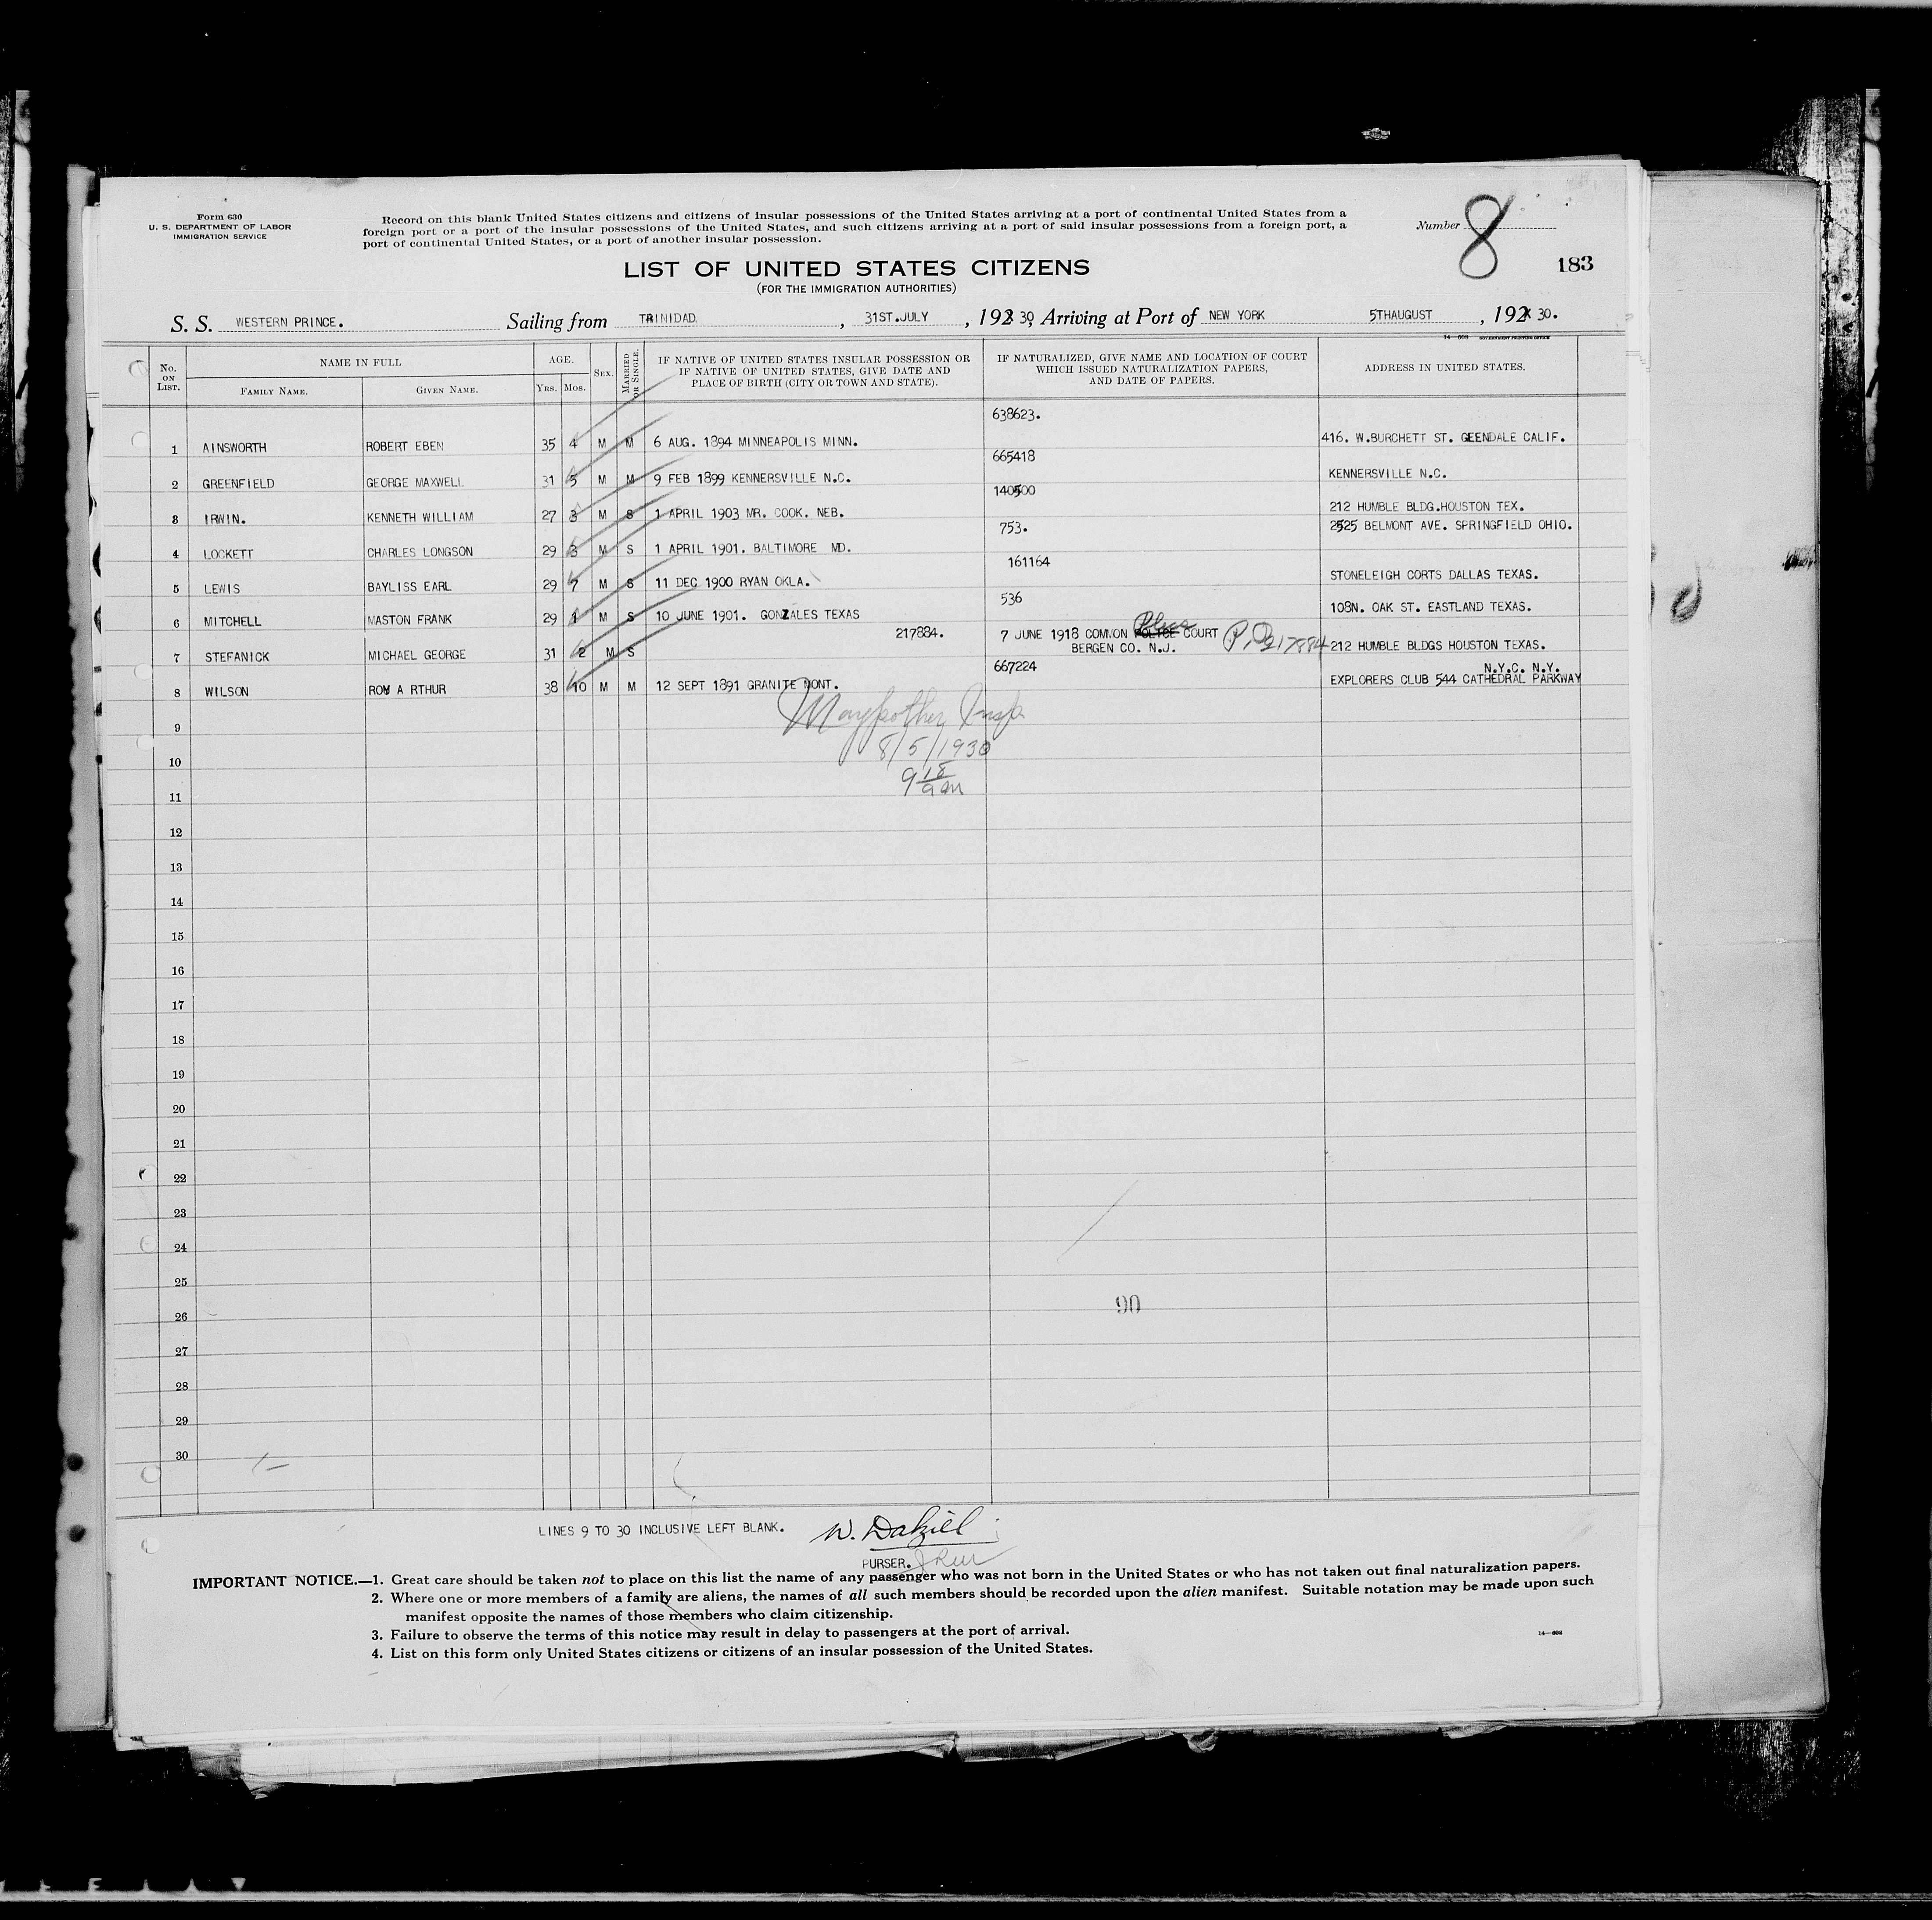 Form 630
U. S. DEPARTMENT OF LABOR
IMMIGRATION SERVICE
Record on this blank United States citizens and citizens of insular possessions of the United States arriving at a port of continental United States from a
foreign port or a port of the insular possessions of the United States, and such citizens arriving at a port of said insular possessions from a foreign port, a
port of continental United States, or a port of another insular possession.
Number 8
183
LIST OF UNITED STATES CITIZENS
(FOR THE IMMIGRATION AUTHORITIES)
S. S. WESTERN PRINCE. Sailing from TRINIDAD. , 31ST.JULY , 192 30, Arriving at Port of NEW YORK 5THAUGUST , 192 30.
GOVERNMENT PRINTING OFFICE
No. ON LIST. NAME IN FULL FAMILY NAME. GIVEN NAME. AGE. YRS. MOS. SEX. MARRIED OR SINGLE. IF NATIVE OF UNITED STATES INSULAR POSSESSION OR IF NATIVE OF UNITED STATES, GIVE DATE AND PLACE OF BIRTH (CITY OR TOWN AND STATE). IF NATURALIZED, GIVE NAME AND LOCATION OF COURT WHICH ISSUED NATURALIZATION PAPERS, AND DATE OF PAPERS. ADDRESS IN UNITED STATES.
638623.
1 AINSWORTH ROBERT EBEN 35 4 M M 6 AUG. 1894 MINNEAPOLIS MINN. 416. W.BURCHETT ST. GEENDALE CALIF.
665418
2 GREENFIELD GEORGE MAXWELL 31 5 M M 9 FEB 1899 KENNERSVILLE N.C. KENNERSVILLE N.C.
140500
3 IRWIN. KENNETH WILLIAM 27 3 M S 1 APRIL 1903 MR. COOK. NEB. 212 HUMBLE BLDG.HOUSTON TEX.
753. 2525 BELMONT AVE. SPRINGFIELD OHIO.
4 LOCKETT CHARLES LONGSON 29 3 M S 1 APRIL 1901. BALTIMORE MD.
161164
5 LEWIS BAYLISS EARL 29 7 M S 11 DEC 1900 RYAN OKLA. STONELEIGH CORTS DALLAS TEXAS.
536
6 MITCHELL MASTON FRANK 29 1 M S 10 JUNE 1901. GONZALES TEXAS 108N. OAK ST. EASTLAND TEXAS.
217884. 7 JUNE 1918 COMMON POLICE Pleas COURT P.P. 217884
BERGEN CO. N.J.
7 STEFANICK MICHAEL GEORGE 31 2 M S 212 HUMBLE BLDGS HOUSTON TEXAS.
667224 N.Y.C. N.Y.
8 WILSON ROY A RTHUR 38 10 M M 12 SEPT 1891 GRANITE MONT. EXPLORERS CLUB 544 CATHEDRAL PARKWAY
Maypother Insp
9
8/5/1930
10
9 18 am
11
12
13
14
15
16
17
18
19
20
21
22
23
24
25
90
26
27
28
29
30
LINES 9 TO 30 INCLUSIVE LEFT BLANK. W. Dalziel
PURSER.
IMPORTANT NOTICE.—1. Great care should be taken not to place on this list the name of any passenger who was not born in the United States or who has not taken out final naturalization papers.
2. Where one or more members of a family are aliens, the names of all such members should be recorded upon the alien manifest. Suitable notation may be made upon such
manifest opposite the names of those members who claim citizenship.
3. Failure to observe the terms of this notice may result in delay to passengers at the port of arrival.
4. List on this form only United States citizens or citizens of an insular possession of the United States.